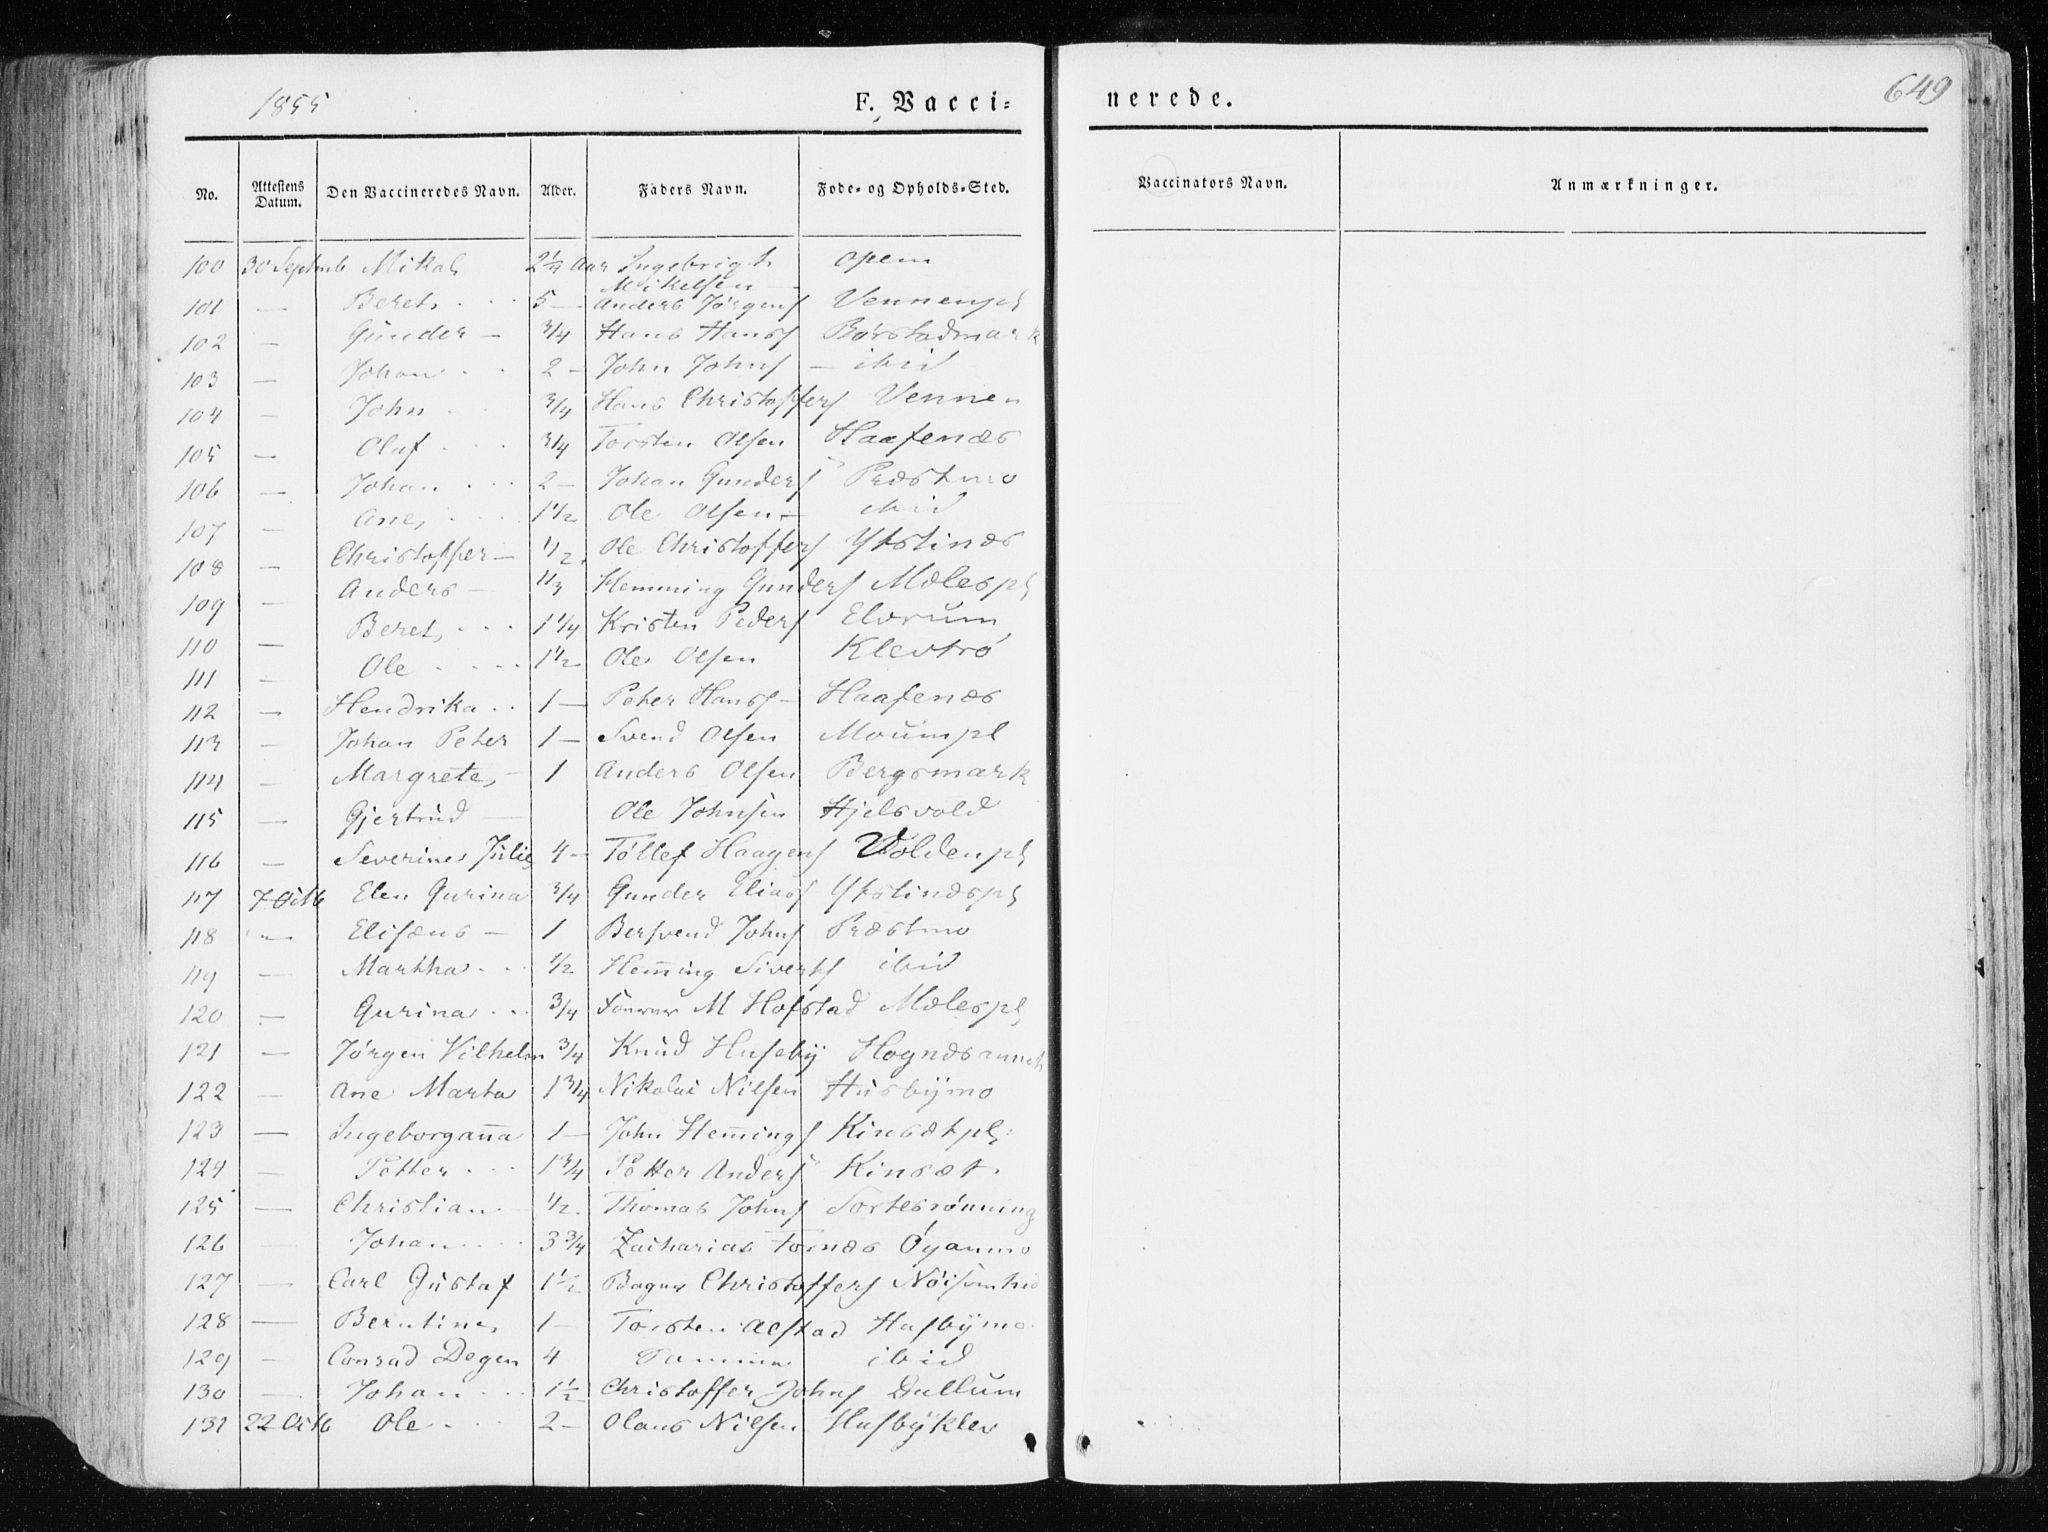 1855 F. Vacci= nerede. 649
No. Attestens Datum. Den Vaccineredes Navn. Alder. Faders Navn. Føde= og Opholds=Sted. Vaccinators Navn. Anmærkninger.
100 30 Septemb Mikal 2 1/4 Aar Ingebrigt Mikelsen — Opem
101 — Beret 5 — Anders Jørgens Vennenpl
102 — Gunder — 3/4 Hans Hans Børstadmark
103 — Johan 2 — John Johns — ibid
104 — John 3/4 Hans Christoffers Vennen
105 — Olaf 3/4 Torsten Olsen Haafenæs
106 — Johan 2 — Johan Gunders Præstmo
107 — Ane 1 1/2 Ole Olsen — ibid
108 — Christoffer — 1/2 Ole Christoffers Ytstinæs
109 — Anders — 1 1/3 Hemming Gunders Mælespl
110 — Beret 1 1/4 Kristen Peders Elvrum
111 — Ole 1 1/2 Ole Olsen Klevtrø
112 — Hendrika 1 — Peter Hans — Haafenæs
113 — Johan Peter 1 — Svend Olsen Mounpl
114 — Margrete — 1 Anders Olsen Bergsmark
115 — Gjertrud — Ole Johnsen Hjelsvold
116 — Severine Julie 4 — Tøllef Haagens Voldenpl
117 7 Octb Elen Gurina 3/4 Gunder Elias Ytstinæspl
118 — Elisæus — 1 Bersvend Johns Præstmo
119 — Martha 1/2 Hem̄ing Siverts ibid
120 — Gurina 3/4 M Hofstad Mælespl
121 — Jørgen Vilhelm 3/4 Knud Huseby Hognæsannet
122 — Ane Marta 1 3/4 Nikolai Nilsen Husbymo
123 — Ingeborgan̄a 1 — John Hem̄ings Kinsætpl:
124 — Petter 1 3/4 Petter Anders Kinsæt
125 — Christian 1/2 Thomas Johns Sortesrønning
126 — Johan 3 3/4 Zacharias Fornæs Øyanmo
127 — Carl Gustaf 1 1/2 Christoffers
128 — Berntine 1 — Torsten Alstad Husbymo
129 — Conrad Degen 4 ibid
130 — Johan 1 1/2 Christoffer Johns Dullum
131 22 Octb Ole 2 — Olaus Nilsen Husbyklev